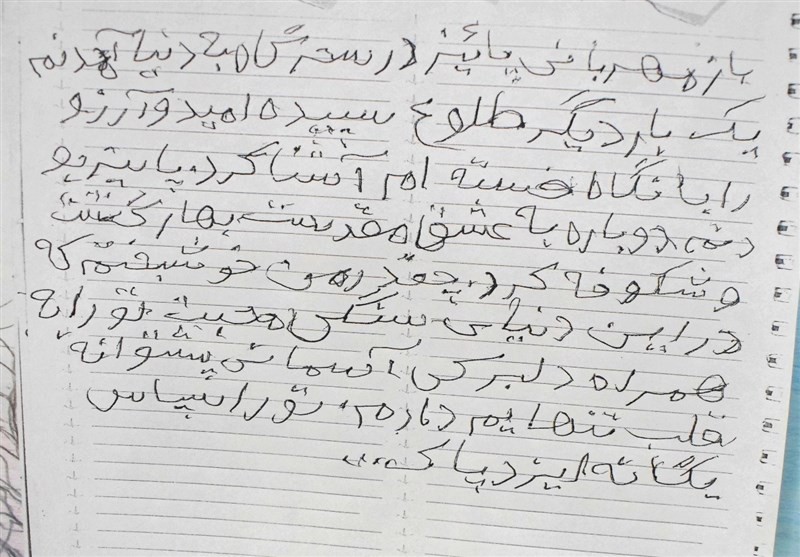 باز مهربانی پائیز در سحرگاه به دنیا آمدنم
یک بار دیگر طلوع سپیده امید و آرزو
را با نگاه خسته ام آشنا کرد. پاییز بو
دنم دوباره به عشق مقدست بهار گشت
و شکوفه کرد. چقدر من خوشبختم که
در این دنیای سنگی محبت تو را به
همراه دلبرکی آسمانی پشتوانه
قلب تنهایم دارم. تو را سپاس
یگانه ایزد پاک...